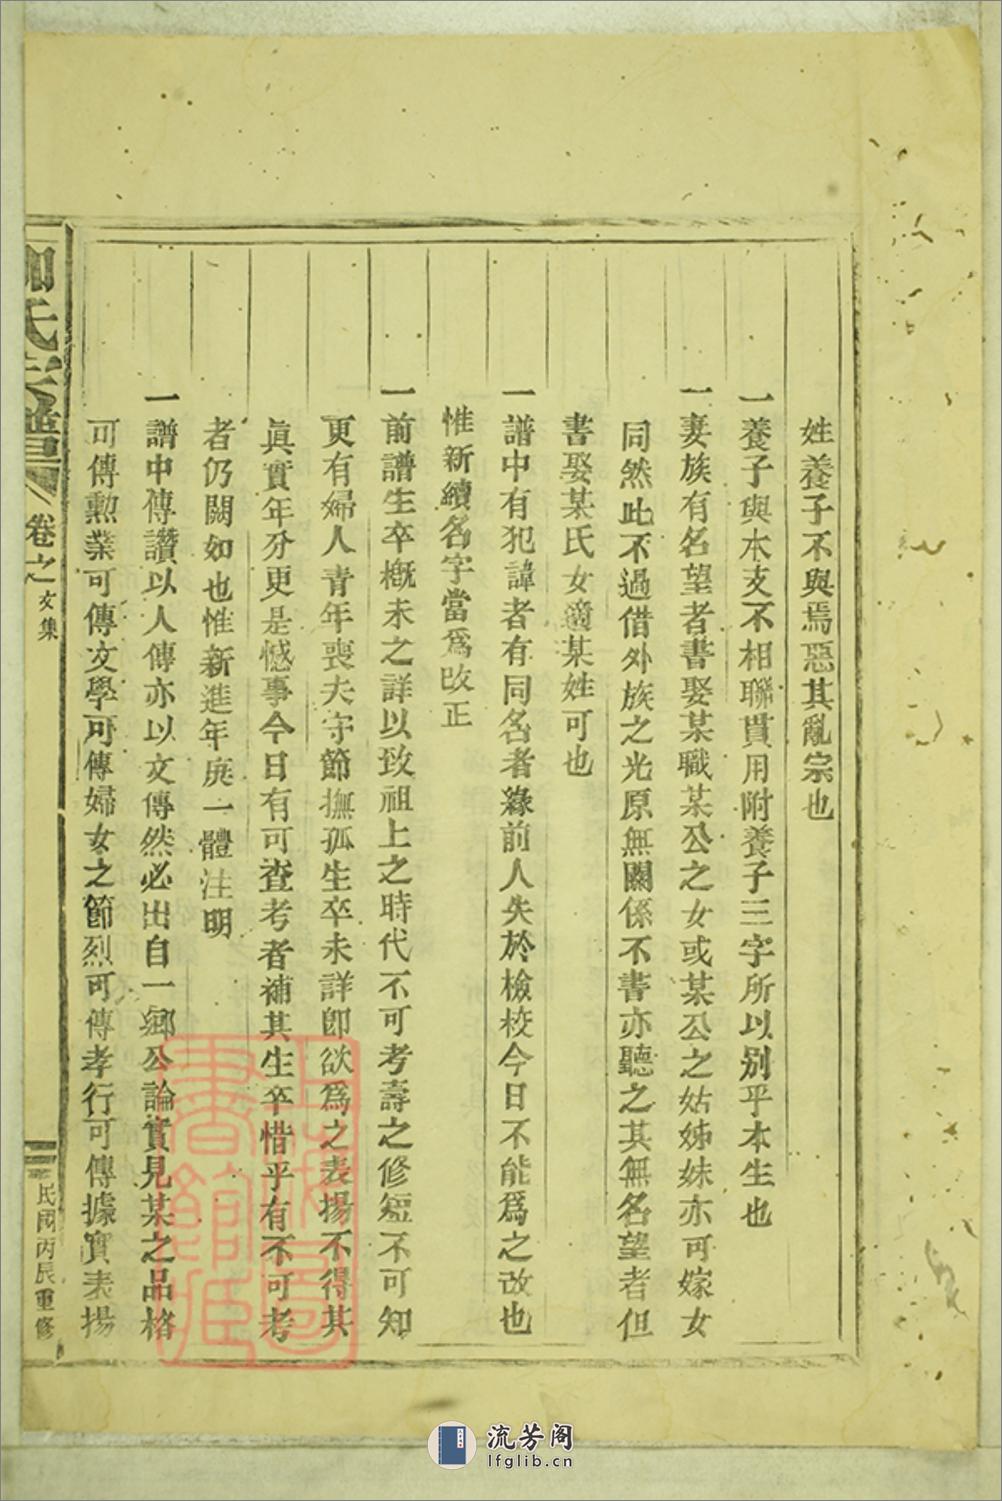 姓養子不與焉惡其亂宗也
一養子與本支不相聯貫用附養子三字所以别乎本生也
一妻族有名望者書娶某職某公之女或某公之姑姊妹亦可嫁女
同然此不過借外族之光原無關係不書亦聽之其無名望者但
書娶某氏女適某姓可也
一譜中有犯諱者有同名者緣前人失於檢校今日不能爲之改也
惟新續名字當爲改正
一前譜生卒概未之詳以致祖上之時代不可考壽之修短不可知
更有婦人青年喪夫守節撫孤生卒未詳卽欲爲之表揚不得其
眞實年分更是憾事今日有可查考者補其生卒惜乎有不可考
者仍闕如也惟新進年庚一體注明
一譜中傳讚以人傳亦以文傳然必出自一鄉公論實見某之品格
可傳勲業可傳文學可傳婦女之節烈可傳孝行可傳據實表揚
氏宗譜 卷之 文集 民國丙辰重修
上海圖書館藏
流芳阁
lfglib.cn